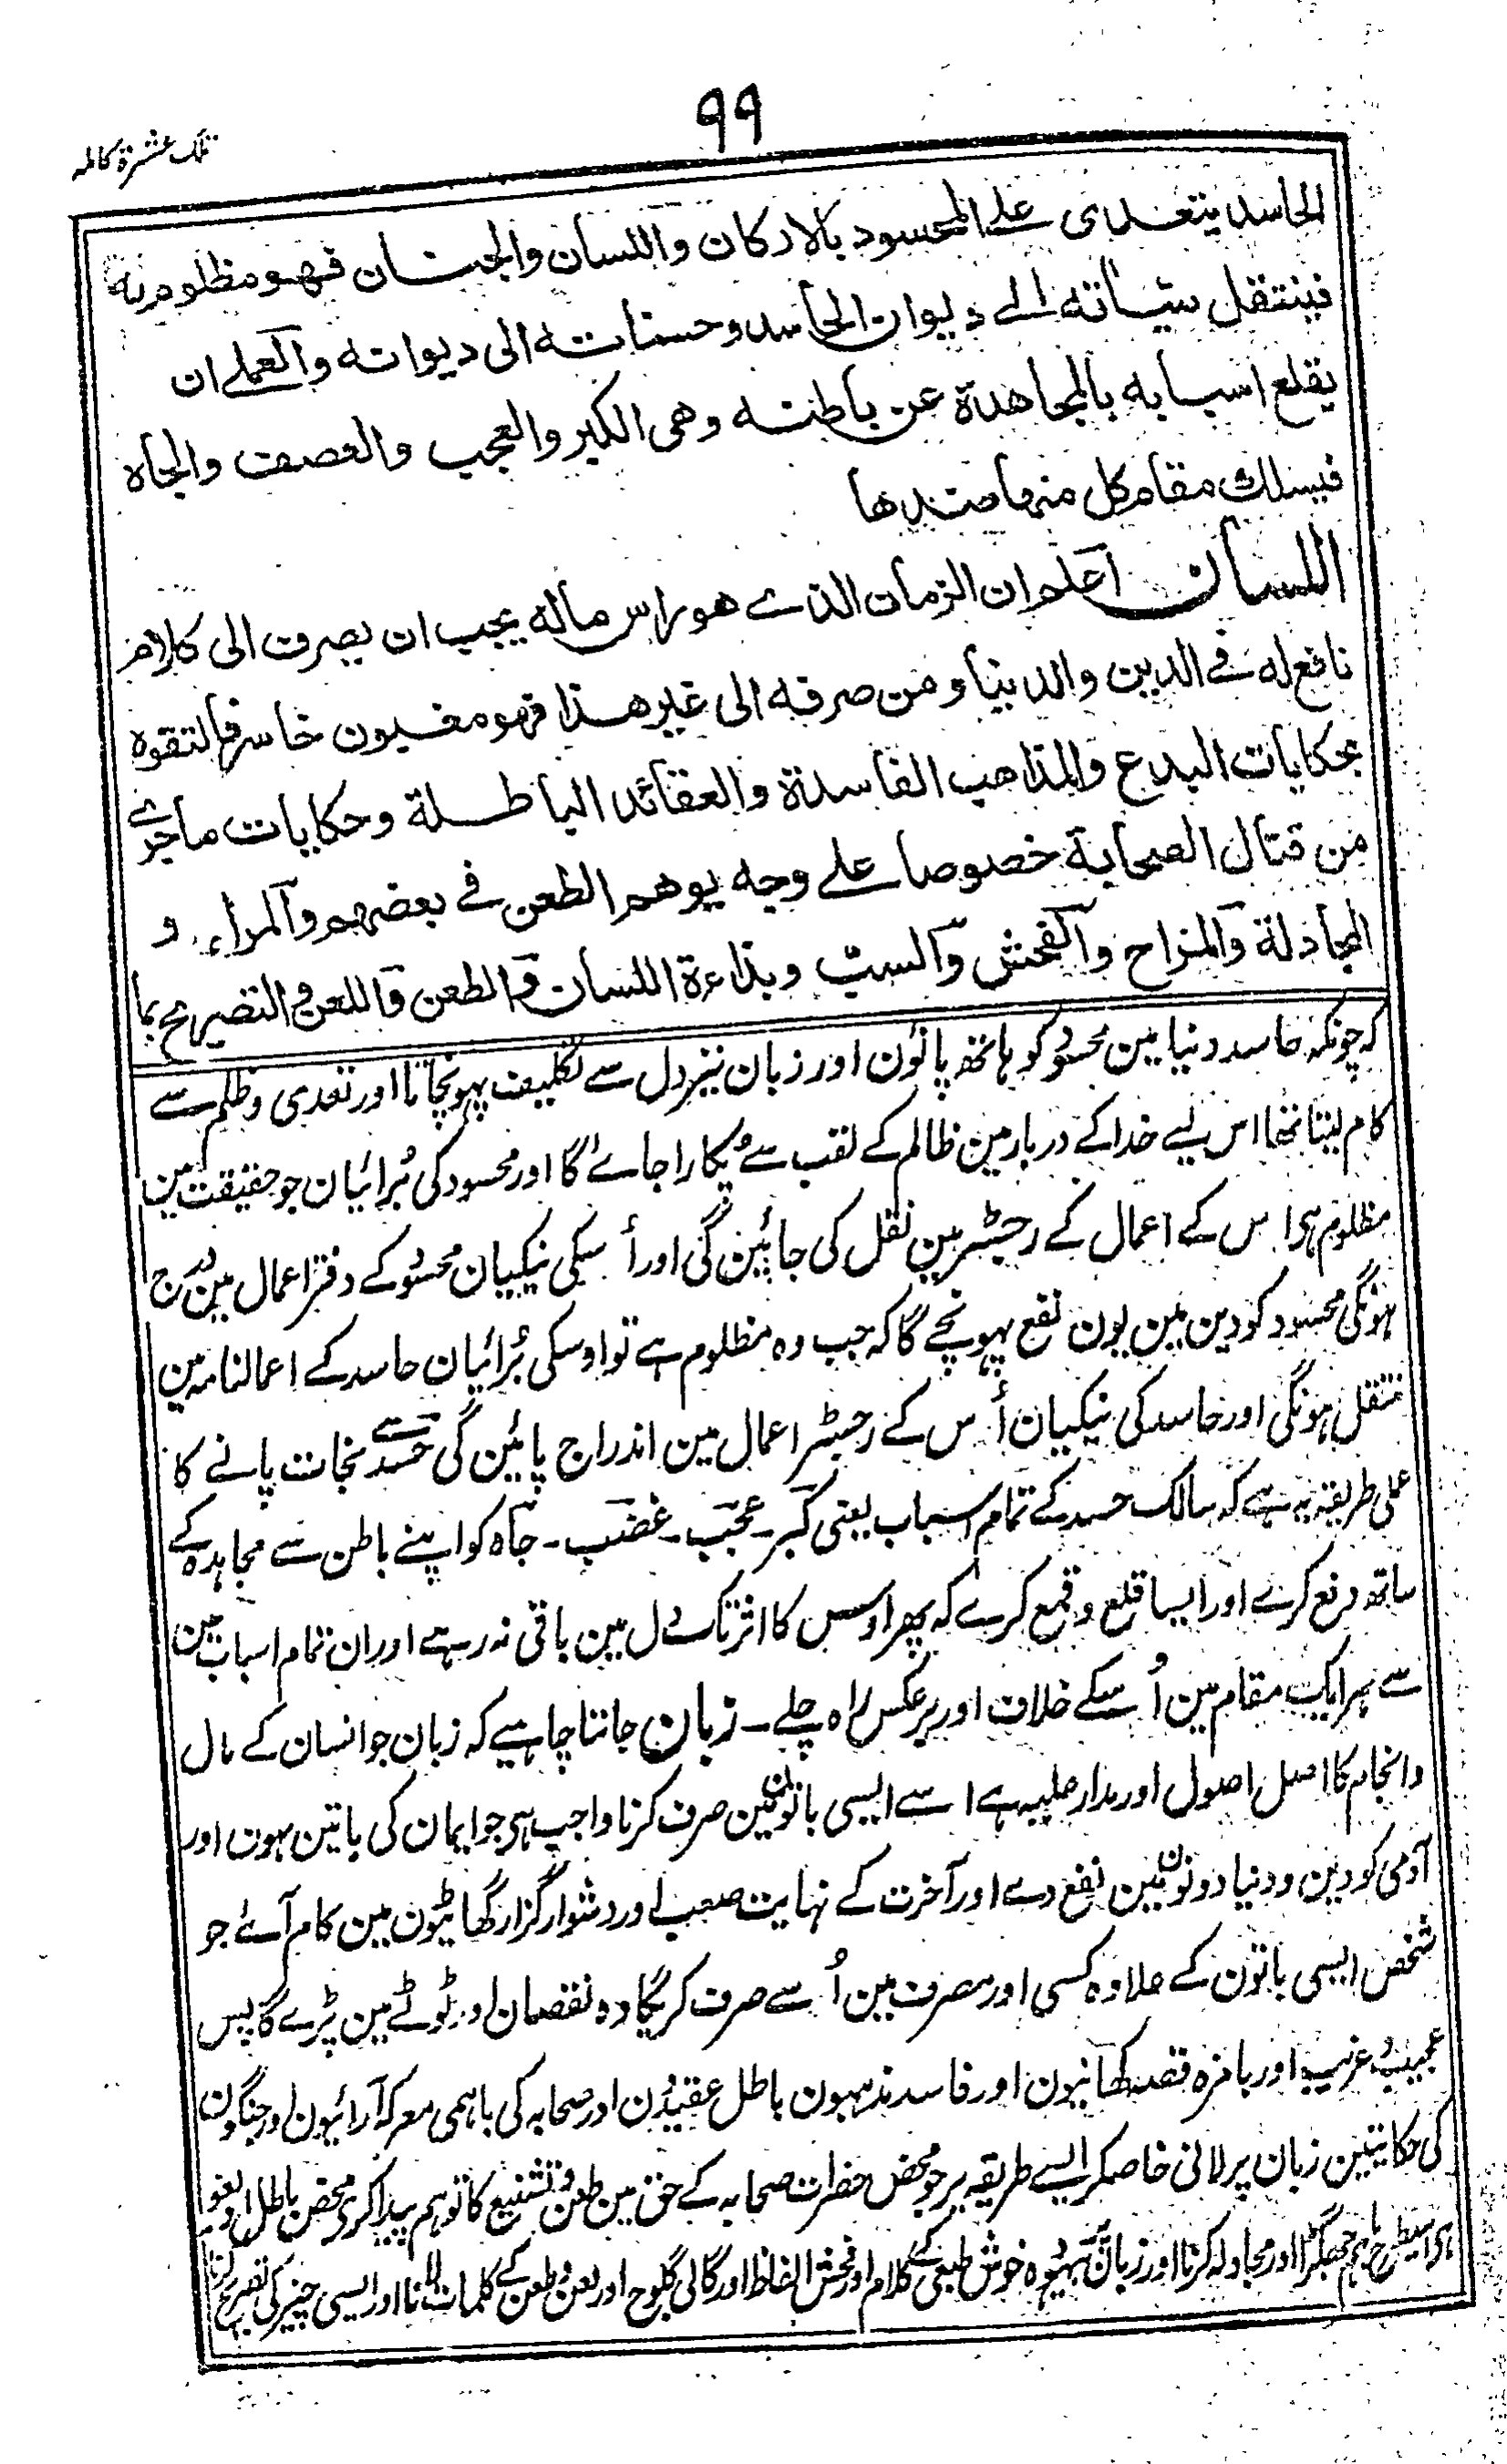 ٩٩
تلک عشرۃ کاملہ
الحاسد یتعدی علے المحسود بالارکان واللسان والجنان فهو مظلوم به
فینتقل سیئاته الے دیوان الحاسد وحسناته الی دیوانه والعملے ان
یقلع اسبابه بالمجاهدة عن باطنه وهی الکبر والعجب والغضب والجاه
فیسلك مقام کل منها ضدها
اللسان اعلم ان الزمان الذے هو راس ماله یجب ان یصرف الی کلام
نافع له فے الدین والدنیا ومن صرفه الی غیر هذا فهو مغبون خاسر فالتفوه
بحکایات البدع والمذاهب الفاسدة والعقائد الباطلة وحکایات ماجرے
من قتال الصحابة خصوصا علے وجه یوهم الطعن فے بعضهم والمراء و
المجادلة والمزاح والفحش والسب وبذاءة اللسان والطعن واللعن والتصریح بما
کہ چونکہ حاسد دنیا مین محسود کو ہاتھ پائون اور زبان نیز دل سے تکلیف پہونچاتا اور تعدی وظلم سے
کام لیتا تھا اس لیے خدا کے دربار مین ظالم کے لقب سے پکارا جائے گا اور محسود کی بُرائیان جو حقیقت مین
مظلوم ہی اس کے اعمال کے رجسٹر مین نقل کی جائین گی اور اُسکی نیکیان محسود کے دفتر اعمال مین درج
ہونگی محسود کو دین مین یون نفع پہونچے گا کہ جب وہ مظلوم ہے تو اوسکی بُرائیان حاسد کے اعمالنامہ مین
منتقل ہونگی اور حاسد کی نیکیان اُس کے رجسٹر اعمال مین اندراج پائین گی حسد سے نجات پانے کا
عملی طریقہ یہ ہے کہ سالک حسد کے تمام اسباب یعنی کبر ۔ عجب ۔ غضب ۔ جاہ کو اپنے باطن سے مجاہدہ کے
ساتھ دفع کرے اور ایسا قلع وقمع کرے کہ پھر اوس کا اثر تک دل مین باقی نہ رہے اور ان تمام اسباب مین
سے ہر ایک مقام مین اُسکے خلاف اور برعکس راہ چلے ۔ زبان جاننا چاہیے کہ زبان جو انسان کے مال
وانجام کا اصل اصول اور مدار علیہ ہے اسے ایسی باتون مین صرف کرنا واجب ہی جو ایمان کی باتین ہون اور
آدمی کو دین ودنیا دونون مین نفع دے اور آخرت کے نہایت صعب اور دشوار گزار گھاٹیون مین کام آئے جو
شخص ایسی باتون کے علاوہ کسی اور مصرف مین اُسے صرف کریگا وہ نقصان اور ٹوٹے مین پڑے گا پس
عجیب وغریب اور بامزہ قصہ کھانیون اور فاسد مذہبون باطل عقیدون اور صحابہ کی باہمی معرکہ آرائیون اور جنگون
کی حکایتین زبان پر لانی خاصکر ایسے طریقہ پر جو محض حضرات صحابہ کے حق مین طعن وتشنیع کا توہم پیدا کرے محض باطل اور لغو
ہی اسیطرح باہم جھگڑا اور مجادلہ کرنا اور زبان پر بیہودہ خوش طبعی کے کلام اور فحش الفاظ اور گالی گلوج اور لعن وطعن کے کلمات لانا اور ایسی چیز کی تصریح کرنا